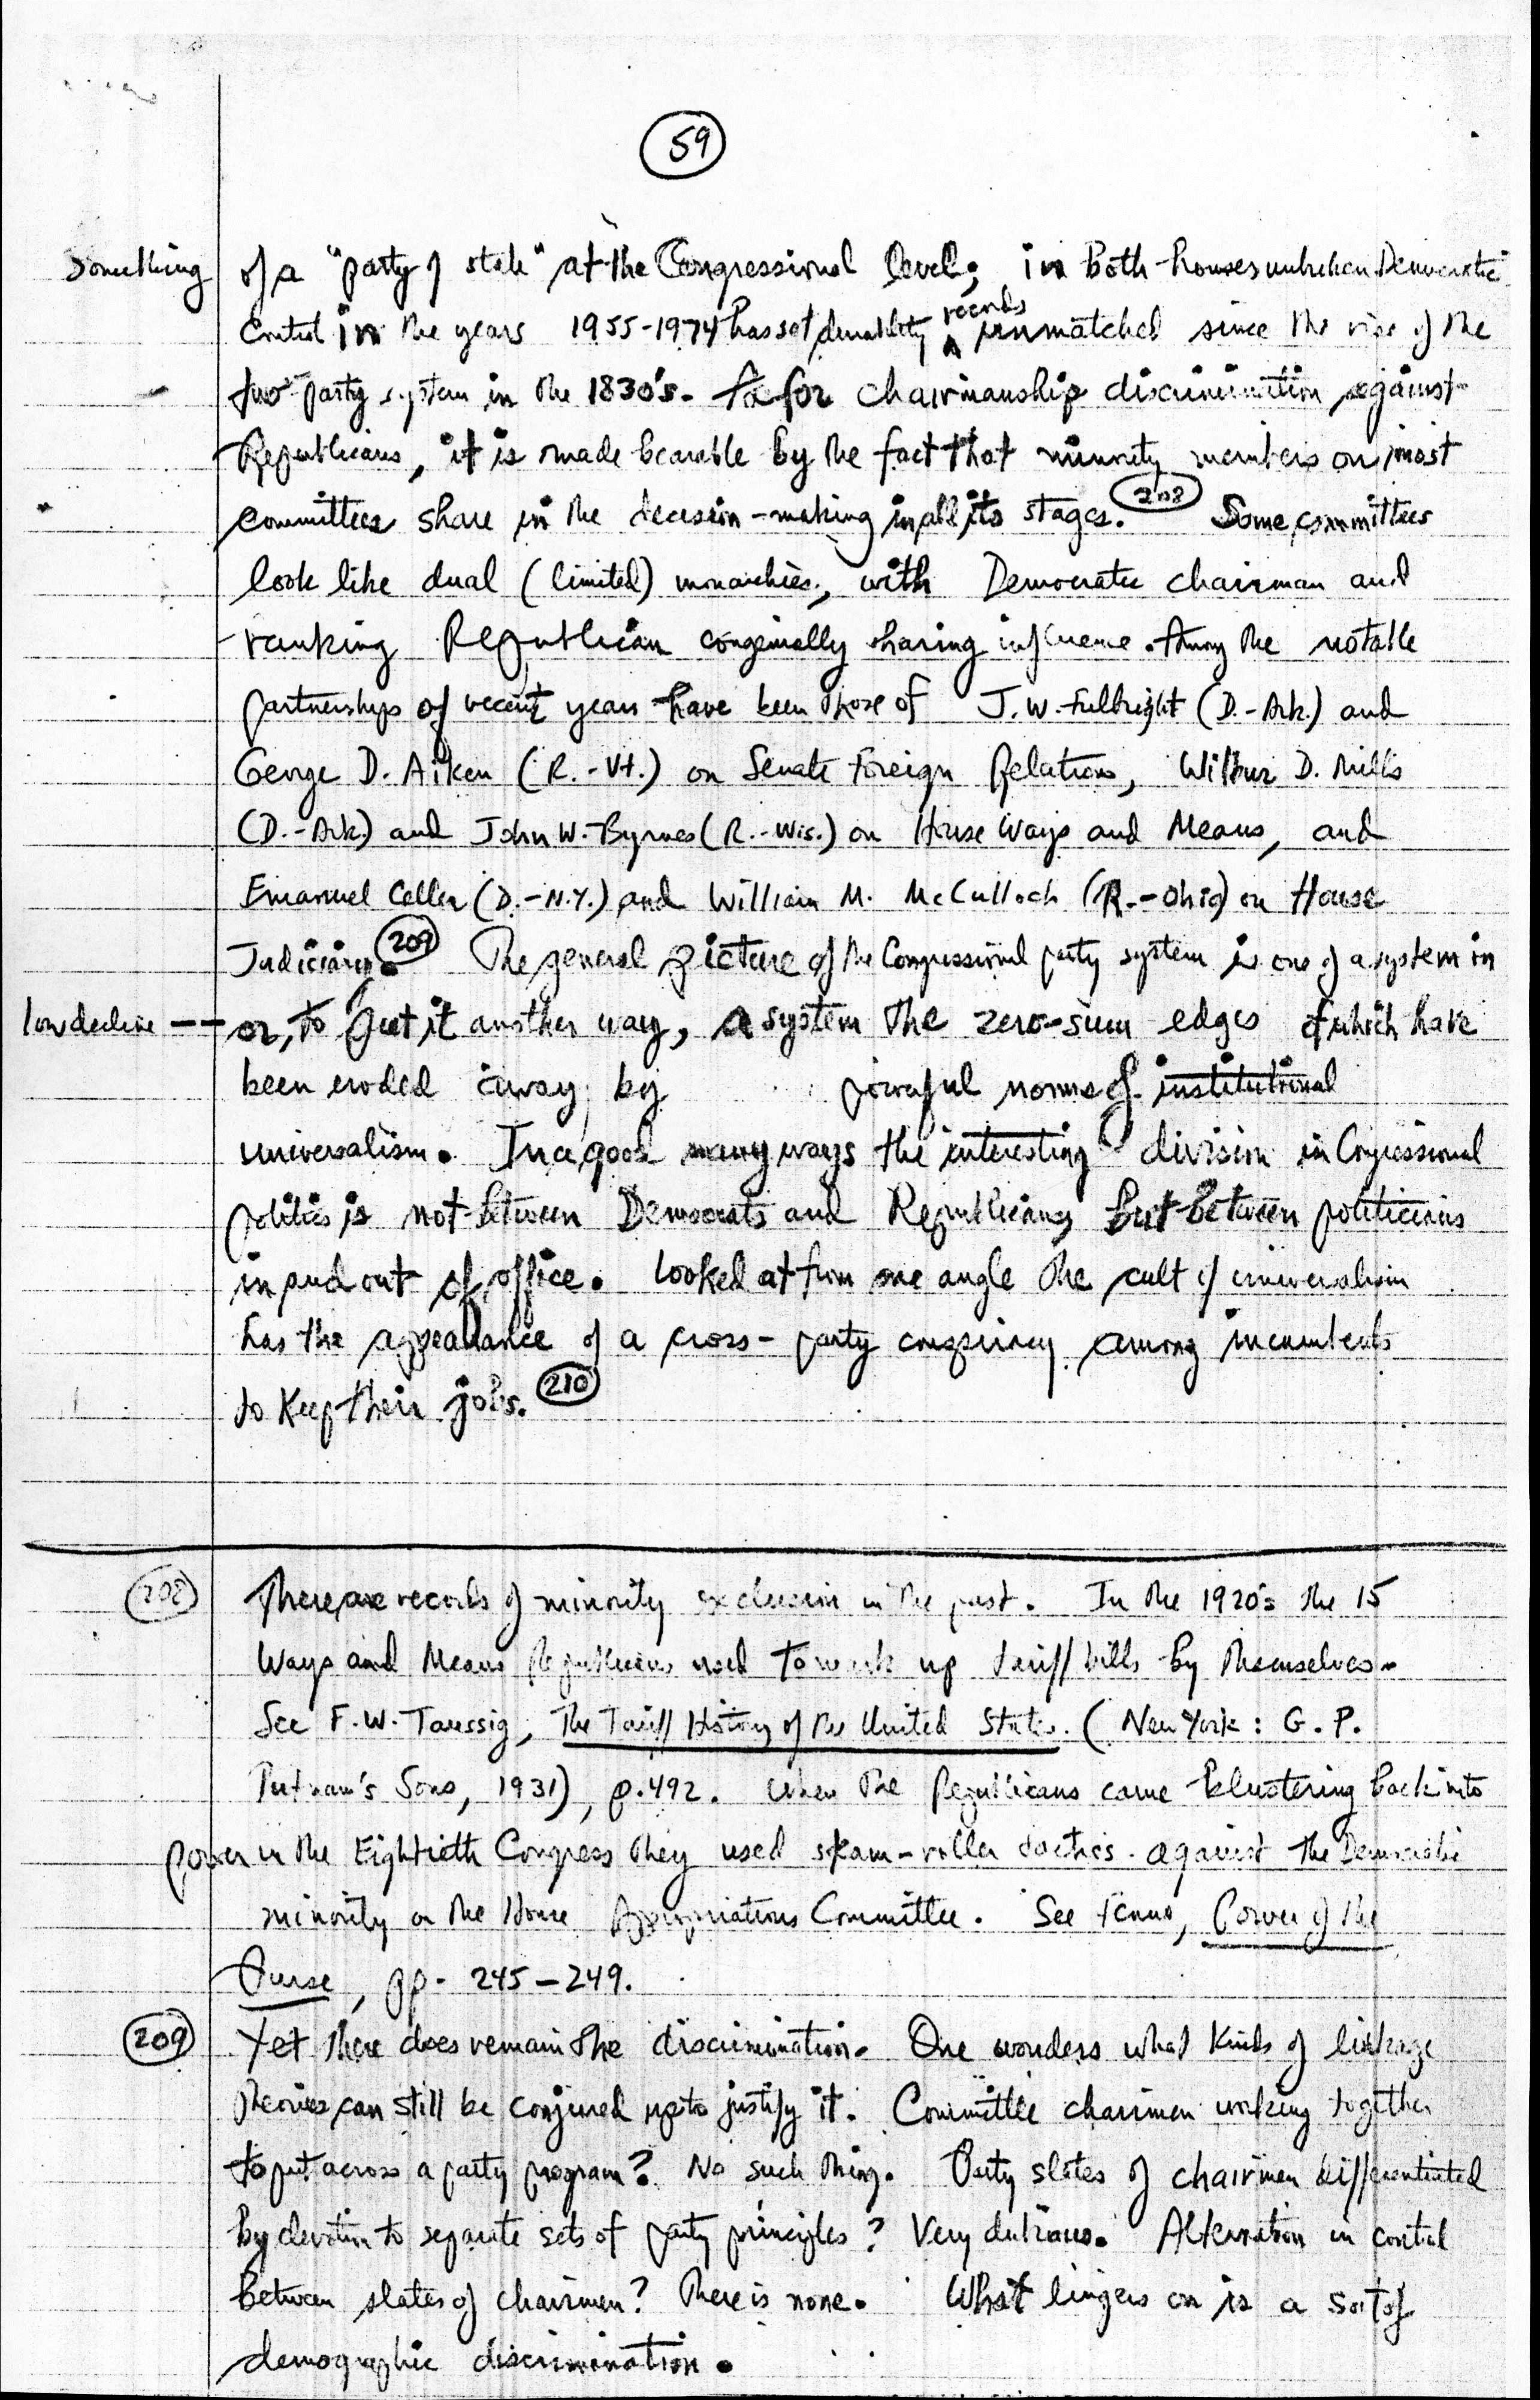 59
something of a "party of state" at the Congressional level; in both houses unbroken Democratic
control in the years 1955-1974 has set durability records unmatched since the rise of the
two-party system in the 1830's. As for chairmanship discrimination against
Republicans, it is made bearable by the fact that minority members on most
committees share in the decision-making in all its stages. 208 Some committees
look like dual (limited) monarchies, with Democratic chairman and
ranking Republican congenially sharing influence. Among the notable
partnerships of recent years have been those of J.W. Fulbright (D.-Ark.) and
George D. Aiken (R.-Vt.) on Senate Foreign Relations, Wilbur D. Mills
(D.-Ark.) and John W. Byrnes (R.-Wis.) on House Ways and Means, and
Emanuel Celler (D.-N.Y.) and William M. McCulloch (R.-Ohio) on House
Judiciary. 209 The general picture of the Congressional party system is one of a system in
slow decline -- or, to put it another way, a system the zero-sum edges of which have
been eroded away by powerful norms of institutional
universalism. In a good many ways the interesting division in Congressional
politics is not between Democrats and Republicans, but between politicians
in and out of office. Looked at from one angle the cult of universalism
has the appearance of a cross-party conspiracy among incumbents
to keep their jobs. 210
208 There are records of minority exclusion in the past. In the 1920's the 15
Ways and Means Republicans used to work up tariff bills by themselves.
See F.W. Taussig, The Tariff History of the United States (New York: G.P.
Putnam's Sons, 1931), p. 492. When the Republicans came blustering back into
power in the Eightieth Congress they used steam-roller tactics against the Democratic
minority on the House Appropriations Committee. See Fenno, Power of the
Purse, pp. 245-249.
209 Yet there does remain the discrimination. One wonders what kinds of linkage
theories can still be conjured up to justify it. Committee chairmen working together
to put across a party program? No such thing. Party slates of chairmen differentiated
by devotion to separate sets of party principles? Very dubious. Alternation in control
between slates of chairmen? There is none. What lingers on is a sort of
demographic discrimination.